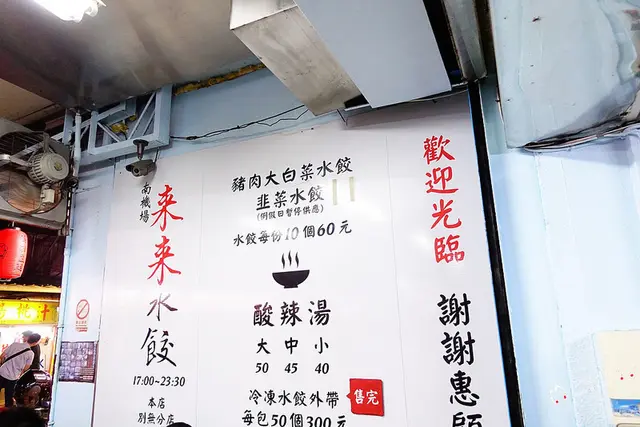 歡迎光臨
謝謝惠顧
豬肉大白菜水餃
韭菜水餃
(例假日暫停供應)
水餃每份10個60元
酸辣湯
大 中 小
50 45 40
冷凍水餃外帶
售完
每包50個300元
南機場
来来水餃
17:00~23:30
本店
別無分店